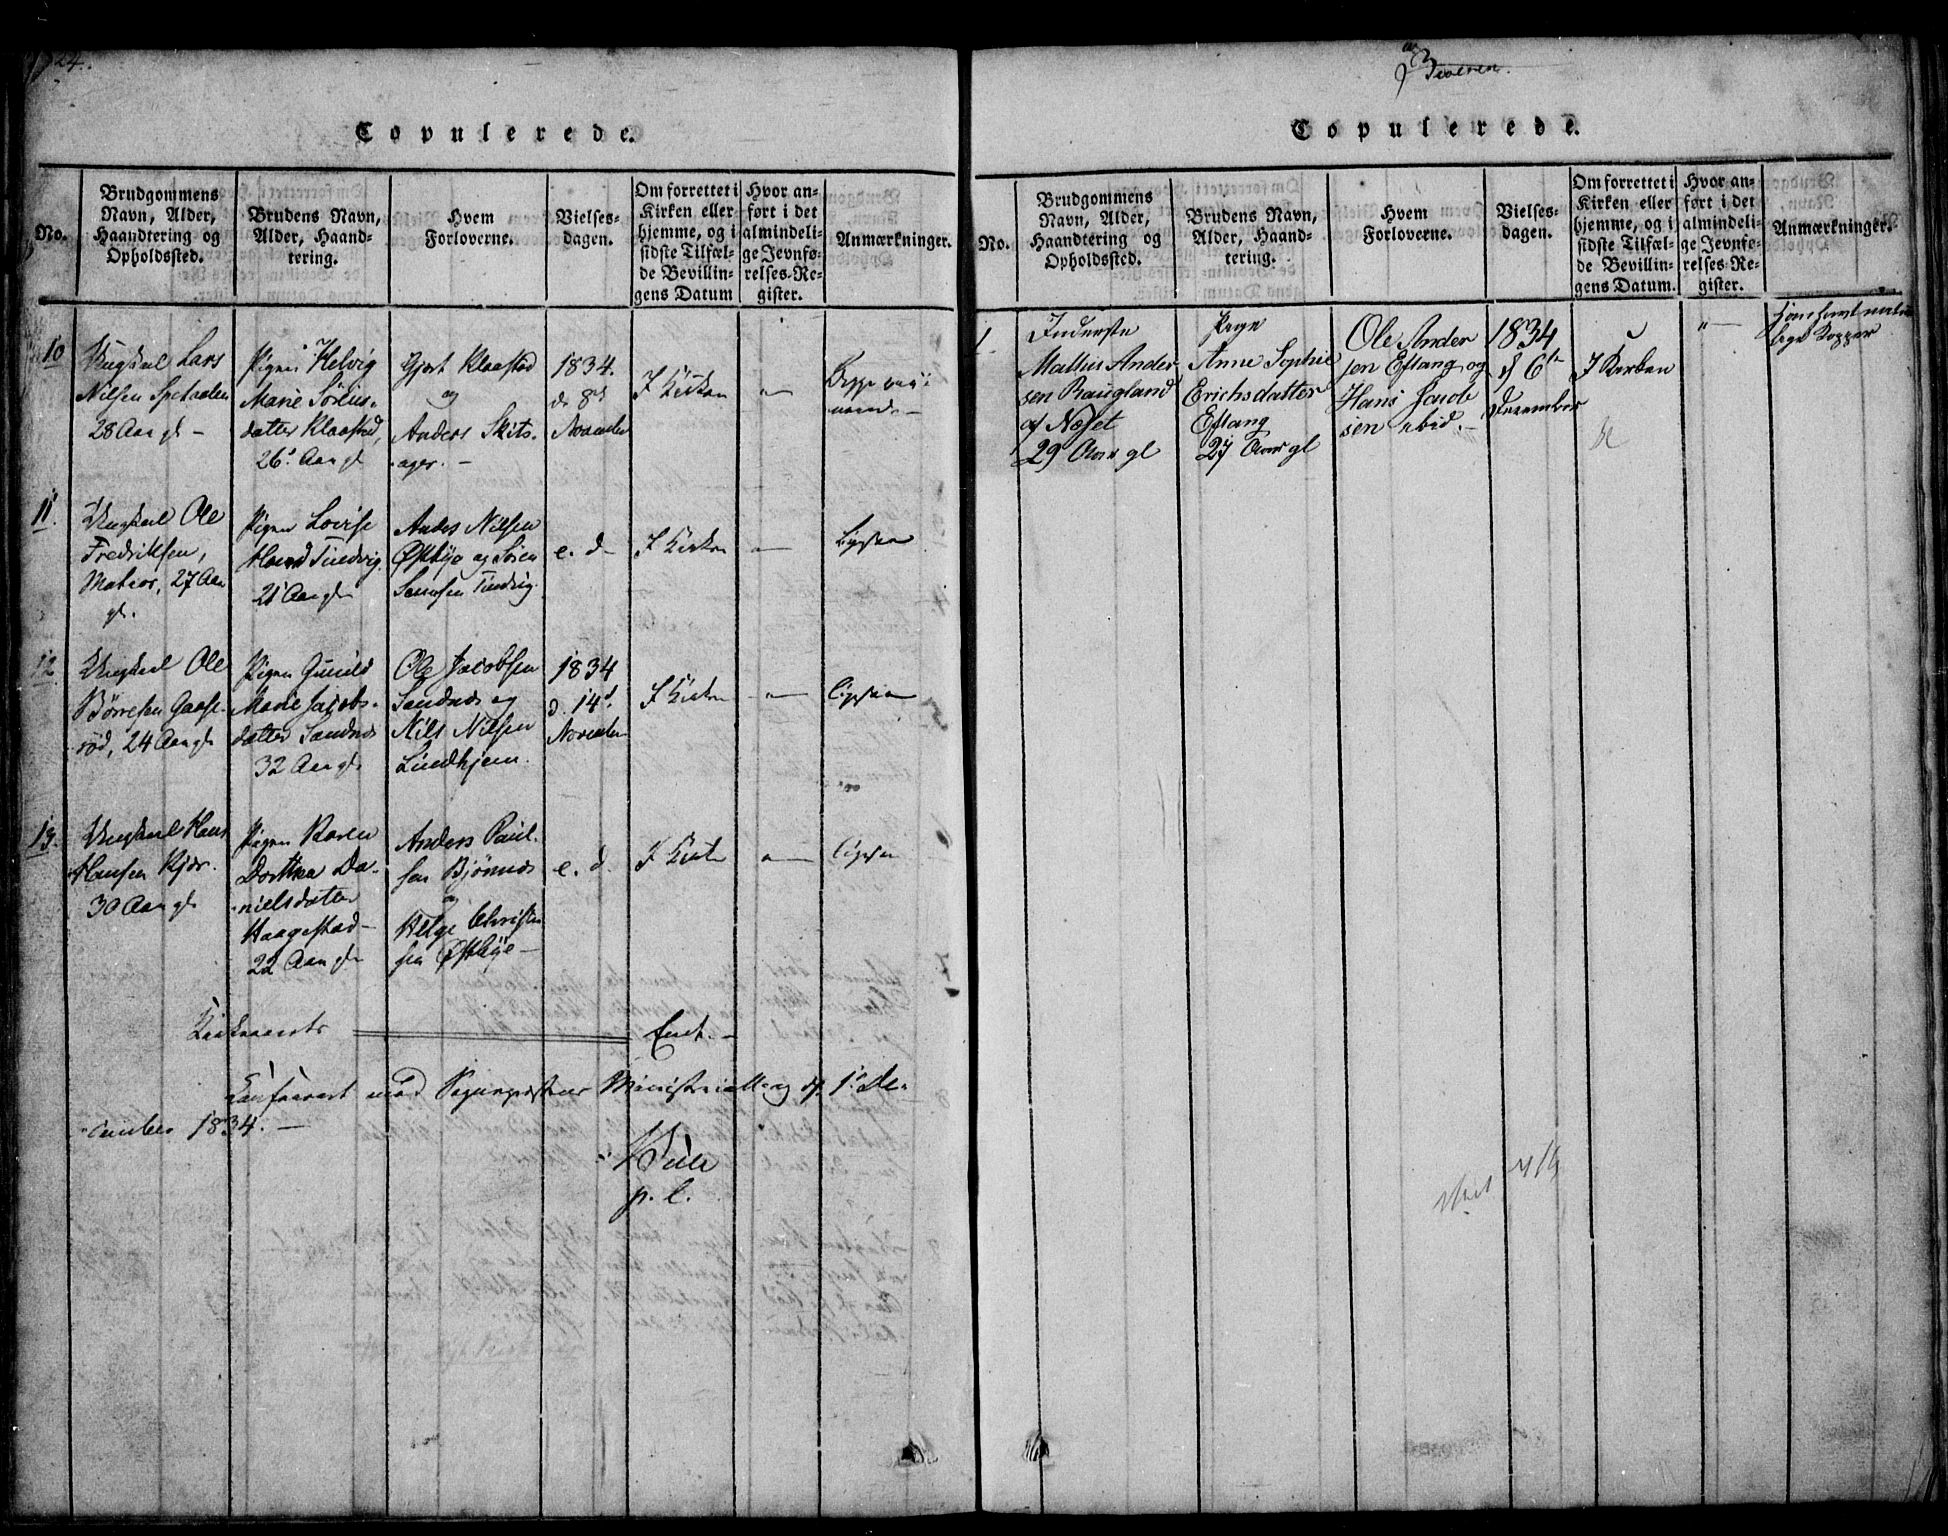 24.
Copulerede.
No.
Brudgommens
Navn, Alder,
Haandtering og
Opholdssted.
Brudens Navn,
Alder, Haand-
tering.
Hvem
Forloverne.
Vielses-
dagen.
Om forrettet i
Kirken eller
hjemme, og i
sidste Tilfæl-
de Bevillin-
gens Datum
Hvor an-
ført i det
almindeli-
ge Jevnfø-
relses-Re-
gister.
Anmærkninger.
10
Ungkarl Lars
Nilsen
28 Aar gl
Pigen Helvig
Marie Sörens-
datter Klaastad,
26 Aar gl
Gjert Klaastad
og
Anders Skits-
ager. -
1834.
d. 8d
November
I Kirken
"
Begge
11.
Ungkarl Ole
Fredriksen,
Matros, 27 Aar
gl.
Pigen Lovise
Tindvig
21 Aar gl
Anders Nilsen
Østbye og Sören
Tindvig.
e. d
I Kirken
"
Ligesaa
12.
Ungkarl Ole
Börresen Gaase-
röd, 24 Aar gl
Pigen Gunild
Marie Jacobs-
datter Sandnæs
32 Aar gl
Ole Jacobsen
Sandnæs og
Nils Nilsen
Lindhjem.
1834
d. 14d
November
I Kirken
"
Ligesaa
13.
Ungkarl Hans
Hansen Kjær.
30 Aar gl
Pigen Karen
Dorthea Da-
nielsdatter
Haagestad
22 Aar gl
Anders Paul-
sen Björnnæs
og
Helge Christen
sen Østbye -
e. d.
I Kirken
"
Ligesaa
Kirkeaarets Ende. -
Confereret med Sogneprestens Ministerialbog d. 1ste De-
cember 1834. -
p. l.
Copulerede.
No.
Brudgommens
Navn, Alder,
Haandtering og
Opholdssted.
Brudens Navn,
Alder, Haand-
tering.
Hvem
Forloverne.
Vielses-
dagen.
Om forrettet i
Kirken eller
hjemme, og i
sidste Tilfæl-
de Bevillin-
gens Datum.
Hvor an-
ført i det
almindeli-
ge Jevnfø-
relses-Re-
gister.
Anmærkninger.
1
Inderste
Mathias Ander
sen Haugland
af Næset
29 Aar gl
Pige
Anne Sophie
Erichsdatter
Eftang
27 Aar gl
Ole Ander
sen Eftang og
Hans Jacob
sen ibid. -
1834
d 6te
December
I Kirken
"
Kopper